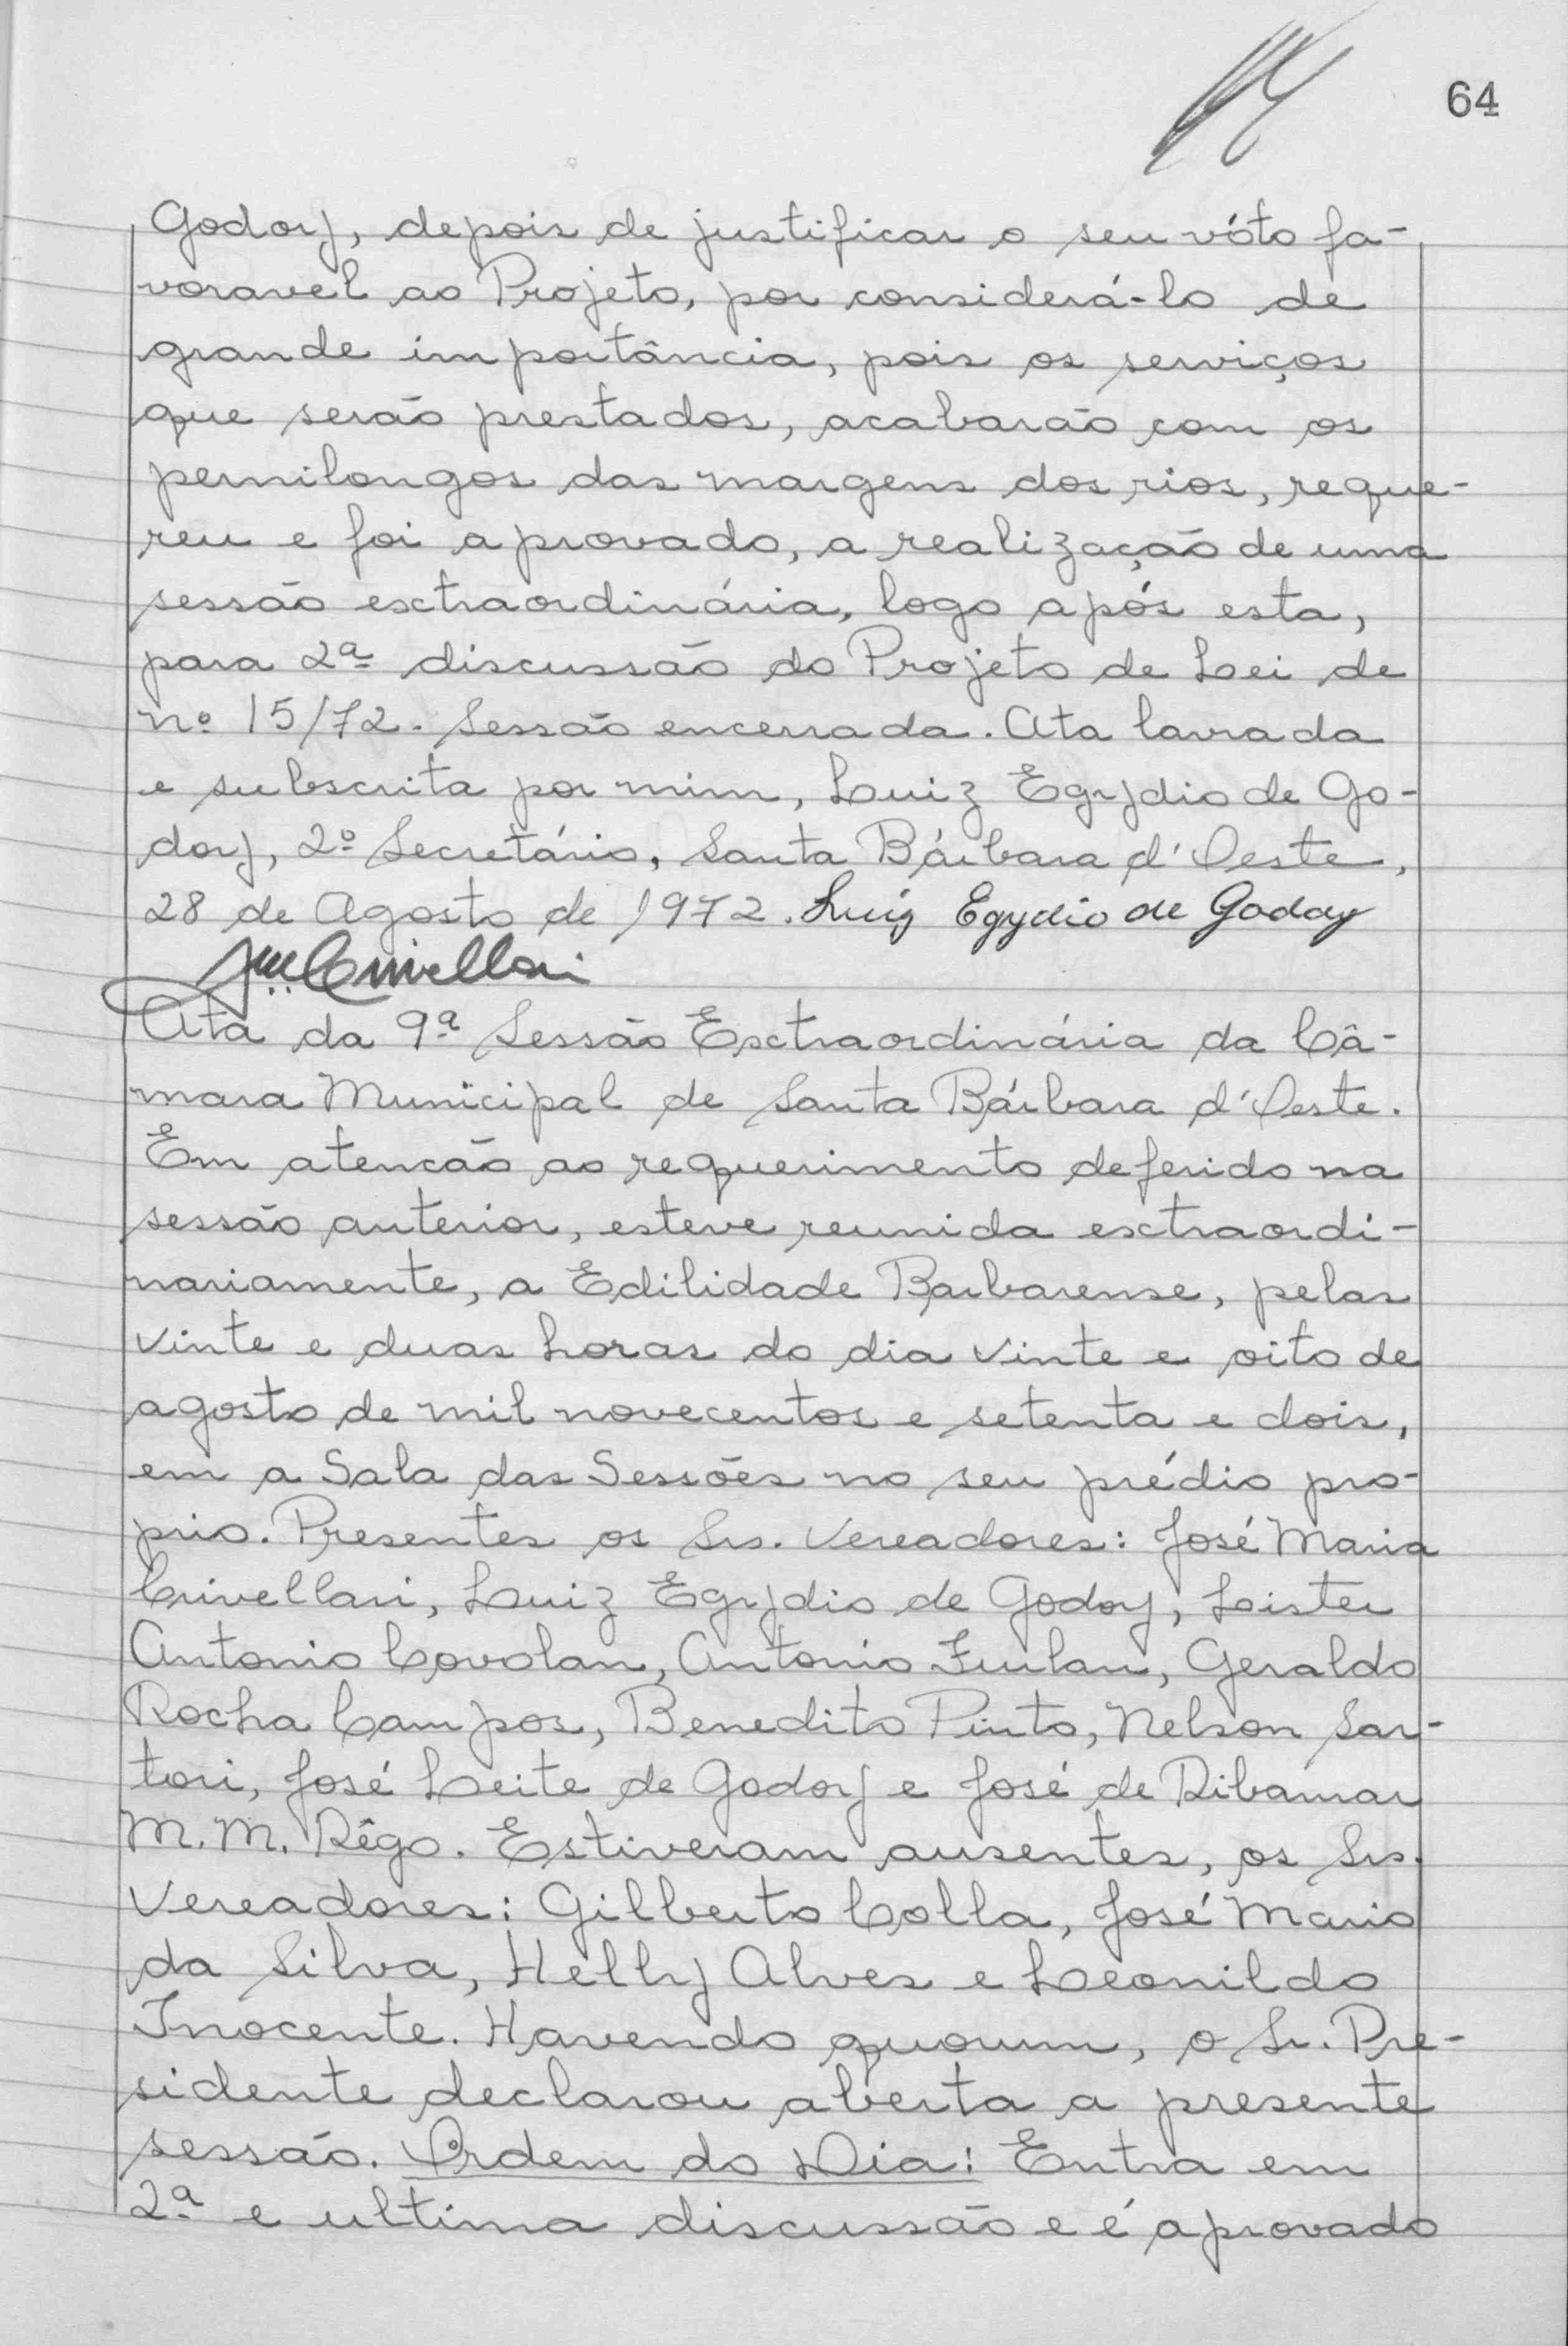 64
Godoy, depois de justificar o seu vóto fa-
voravel ao Projeto, por considerá-lo de
grande importância, pois os serviços
que serão prestados, acabarão com os
pernilongos das margens dos rios, reque-
reu e foi aprovado, a realização de uma
sessão extraordinária, logo após esta,
para 2ª discussão do Projeto de Lei de
nº 15/72. Sessão encerrada. Ata lavrada
e subscrita por mim, Luiz Egydio de Go-
doy, 2º Secretário, Santa Bárbara d'Oeste,
28 de Agosto de 1972. Luiz Egydio de Godoy
Crivellari
Ata da 9ª Sessão Extraordinária da Câ-
mara Municipal de Santa Bárbara d'Oeste.
Em atencão ao requerimento deferido na
sessão anterior, esteve reunida extraordi-
nariamente, a Edilidade Barbarense, pelas
vinte e duas horas do dia vinte e oito de
agosto de mil novecentos e setenta e dois,
em a Sala das Sessões no seu prédio pro-
prio. Presentes os Srs. Vereadores: José Maria
Crivellari, Luiz Egydio de Godoy, Lister
Antonio Covolan, Antonio Furlan, Geraldo
Rocha Campos, Benedito Pinto, Nelson Sar-
tori, José Leite de Godoy e José de Ribamar
M. M. Rêgo. Estiveram ausentes, os Srs.
Vereadores: Gilberto Colla, José Mario
da Silva, Helly Alves e Leonildo
Inocente. Havendo quorum, o Sr. Pre-
sidente declarou aberta a presente
sessão. Ordem do Dia: Entra em
2ª e ultima discussão e é aprovado